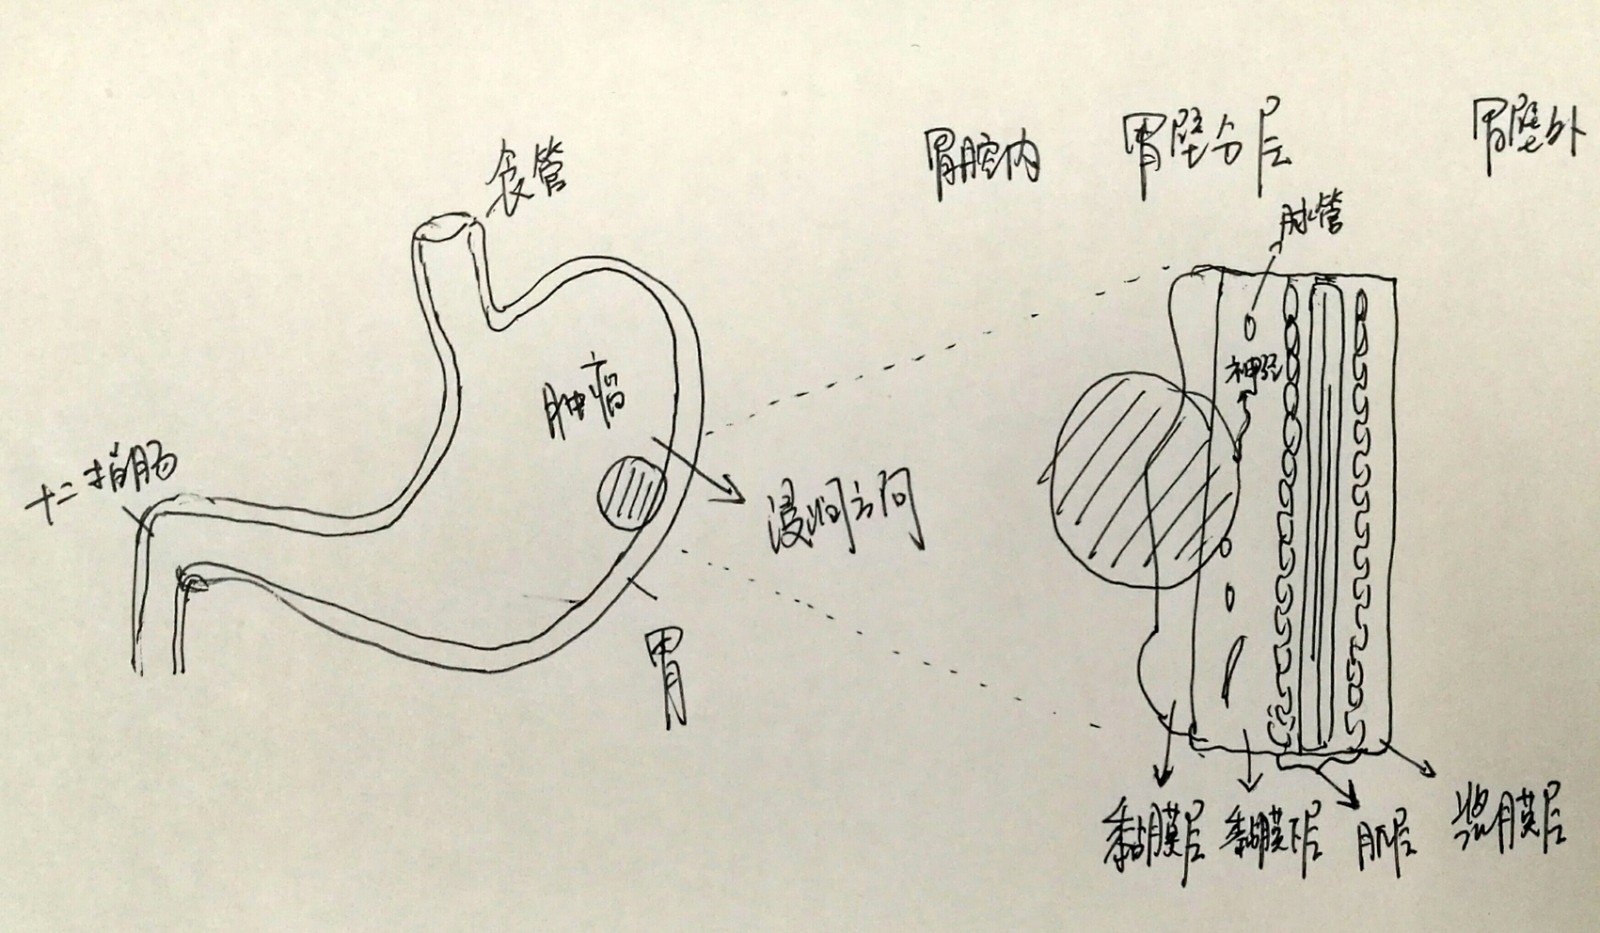 食管
肿瘤
十二指肠
浸润方向
胃
胃腔内
胃壁分层
胃壁外
脉管
神经
黏膜层
黏膜下层
肌层
浆膜层